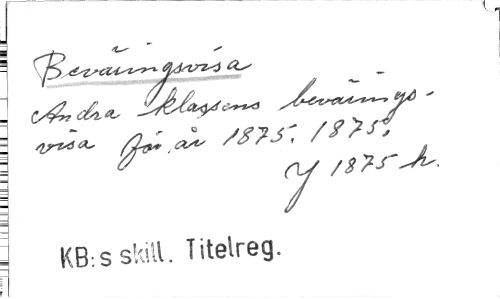 Beväringsvisa
Andra klassens bevärings-
visa för år 1875. 1875.
Y 1875 h.
KB:s skill. Titelreg.